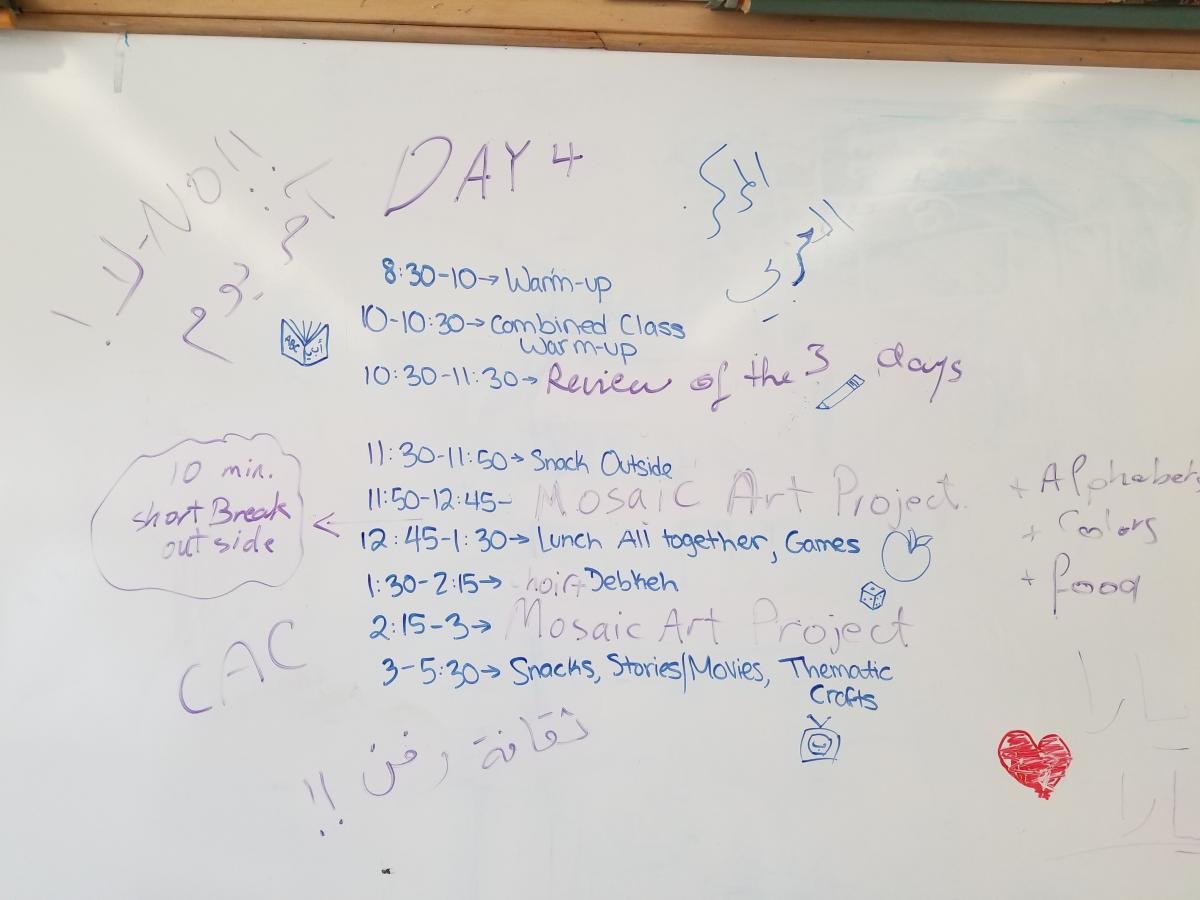 DAY 4
لا-NO!!
المركز
العربي
8:30-10→ Warm-up
10-10:30→ Combined Class
Warm-up
ABC
10:30-11:30→ Review of the 3 days
11:30-11:50→ Snack Outside
11:50-12:45- Mosaic Art Project
12:45-1:30→ Lunch All together, Games
10 min.
short Break
outside
1:30-2:15→ Debkeh
2:15-3→ Mosaic Art Project
3-5:30→ Snacks, Stories/Movies, Thematic
Crafts
+ Alphabets
+ Colors
+ food
CAC
ثقافة وفن !!
يارا
يارا